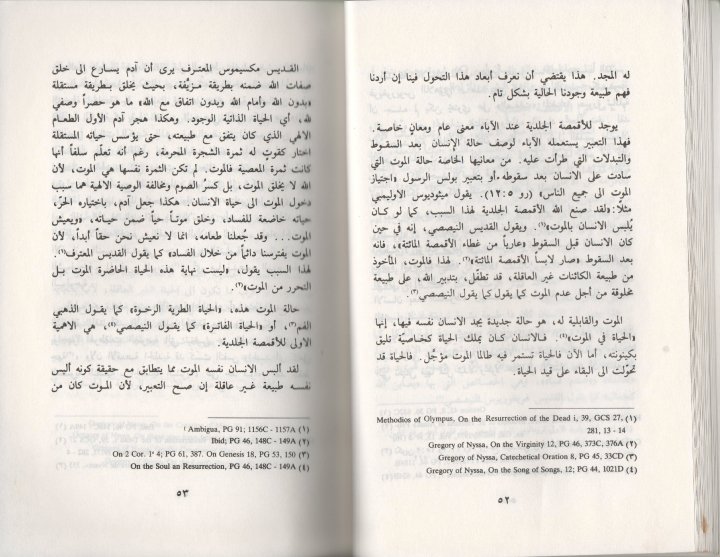 له المجد. هذا يقتضي أن نعرف أبعاد هذا التحول فينا إن أردنا
فهم طبيعة وجودنا الحالية بشكل تام.
يوجد للأقمصة الجلدية عند الآباء معنى عام ومعانٍ خاصة.
فهذا التعبير يستعمله الآباء لوصف حالة الإنسان بعد السقوط
والتبدلات التي طرأت عليه. من معانيها الخاصة حالة الموت التي
سادت على الانسان بعد سقوطه، أو بتعبير بولس الرسول «اجتياز
الموت الى جميع الناس» (رو ٥:١٢). يقول ميثوديوس الاوليمبي
مثلًا: «لقد صنع الله الأقمصة الجلدية لهذا السبب، كما لو كان
يُلبس الانسان بالموت»(١). ويقول القديس النيصصي، إنه في حين
كان الانسان قبل السقوط «عارياً من غطاء الأقمصة المائتة»، فإنه
بعد السقوط «صار لابساً الأقمصة المائتة»(٢). هذا فالموت، المأخوذ
من طبيعة الكائنات غير العاقلة، قد تطفّل، بتدبير الله، على طبيعة
مخلوقة من أجل عدم الموت كما يقول النيصصي(٣).
الموت والقابلية له، هو حالة جديدة يجد الانسان نفسه فيها، إنها
«الحياة في الموت»(٤). فالانسان كان يملك الحياة كخاصيّة تليق
بكينونته، أما الآن فالحياة تستمر فيه طالما الموت مؤجّل. فالحياة قد
تحوّلت الى البقاء على قيد الحياة
(١) Methodios of Olympus, On the Resurrection of the Dead i, 39, GCS 27,
281, 13 - 14
(٢) Gregory of Nyssa, On the Virginity 12, PG 46, 373C, 376A
(٣) Gregory of Nyssa, Catechetical Oration 8, PG 45, 33CD
(٤) Gregory of Nyssa, On the Song of Songs, 12; PG 44, 1021D
٥٢
القديس مكسيموس المعترف يرى أن آدم يسارع الى خلق
صفات الله ضمنه بطريقة مزيّفة، بحيث يخلق بطريقة مستقلة
«بدون الله وأمام الله وبدون اتفاق مع الله، ما هو حصراً وصفي
لله، أي الحياة الذاتية الوجود. وهكذا هجر آدم الأول الطعام
الالهي الذي كان يتفق مع طبيعته، حتى يؤسس حياته المستقلة
اختار كقوتٍ له ثمرة الشجرة المحرمة، رغم أنه تعلّم سلفاً أنها
كانت ثمرة المعصية فالموت. لم تكن الثمرة نفسها هي الموت، لأن
الله لا يخلق الموت، بل كسرُ الصوم ومخالفة الوصية الالهية هما سبب
دخول الموت الى حياة الانسان. هكذا جعل آدم، باختياره الحرّ،
حياته خاضعة للفساد، وخلق موتاً حياً ضمن حياته، «ويعيش
الموت... وقد جُعلنا طعامه، انما لا نعيش نحن حقاً أبداً، لأن
الموت يفترسنا دائماً من خلال الفساد» كما يقول القديس المعترف(١).
لهذا السبب يقول، «ليست نهاية هذه الحياة الحاضرة الموت بل
التحرر من الموت»(٢).
حالة الموت هذه، «الحياة الطرية الرخوة» كما يقول الذهبي
الفم(٣)، أو «الحياة الفاترة» كما يقول النيصصي(٤)، هي الاهمية
الاولى للأقمصة الجلدية.
لقد ألبس الانسان نفسه الموت مما يتطابق مع حقيقة كونه ألبس
نفسه طبيعة غير عاقلة إن صح التعبير، لأن الموت كان من
(١) Ambigua, PG 91; 1156C - 1157A
(٢) Ibid; PG 46, 148C - 149A
(٣) On 2 Cor. 1ª 4; PG 61, 387. On Genesis 18, PG 53, 150
(٤) On the Soul an Resurrection, PG 46, 148C - 149A
٥٣